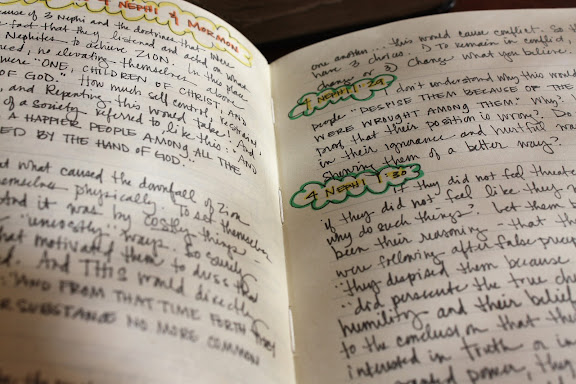 4 NEPHI & MORMON
because of 3 Nephi and the doctrines that were
fact that they listened and acted on what
Nephites to achieve ZION. In this place
no elevating themselves above
were "ONE, CHILDREN OF CHRIST, AND
OF GOD." How much self control, restraint
and Repenting this would take! And,
of a society referred to like this: "AND
A HAPPIER PEOPLE AMONG ALL THE
BY THE HAND OF GOD."
what caused the downfall of Zion
physically. To set themselves
And it was by costly things -
"uncostly" ways so surely
that motivated them to dress that
And THIS would directly
"AND FROM THAT TIME FORTH THEY
SUBSTANCE NO MORE COMMON
one another... this would cause conflict. So th
have 3 choices. 1) To remain in conflict,
change or 3) Change what you believe.
4 NEPHI 1:29 I don't understand why this would
people "DESPISE THEM BECAUSE OF THE
WERE WROUGHT AMONG THEM." Why?
proof that their position is wrong? Do
in their ignorance and hurtful
showing them of a better way?
4 NEPHI 1:30 If they did not feel threate
if they did not feel like they
why do such things? Let them b
been their reasoning - that th
were following after false
"they despised them because
"did persecute the true ch
humility and their belief
to the conclusion that the
interested in truth or in
and power, they